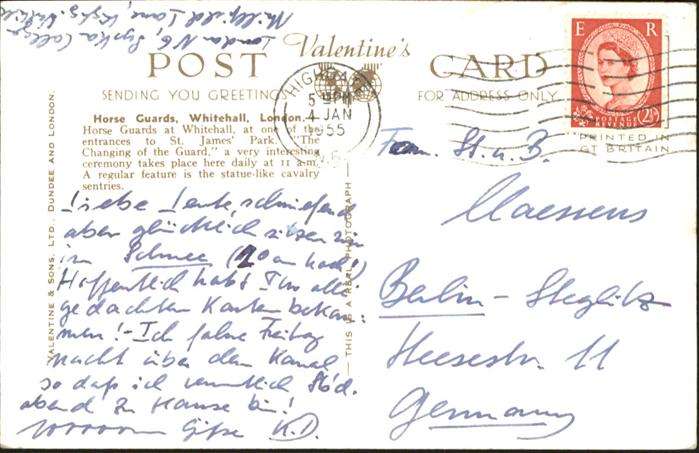 Millfield Lane, Hghg. Middle
London N 6, Syska College
Valentine's
POST CARD
SENDING YOU GREETINGS
FOR ADDRESS ONLY
Horse Guards, Whitehall, London.
Horse Guards at Whitehall, at one of the
entrances to St. James' Park. "The
Changing of the Guard," a very interesting
ceremony takes place here daily at 11 a.m.
A regular feature is the statue-like cavalry
sentries.
VALENTINE & SONS, LTD., DUNDEE AND LONDON.
THIS IS A REAL PHOTOGRAPH
HIGHGATE
5 PM
4 JAN
1955
E R
POSTAGE REVENUE
2½D
PRINTED IN
GT BRITAIN
Liebe Leute, schniefend
aber glücklich sitzen wir
im Schnee (20 cm hoch!)
Hoffentlich habt Ihr alle
gedachten Karten bekom-
men! - Ich fahre Freitag
nacht über den Kanal
so daß ich
abend zu Hause bin!
K.D.
Fam. St. u. B.
Claessens
Berlin - Steglitz
Heesestr. 11
Germany